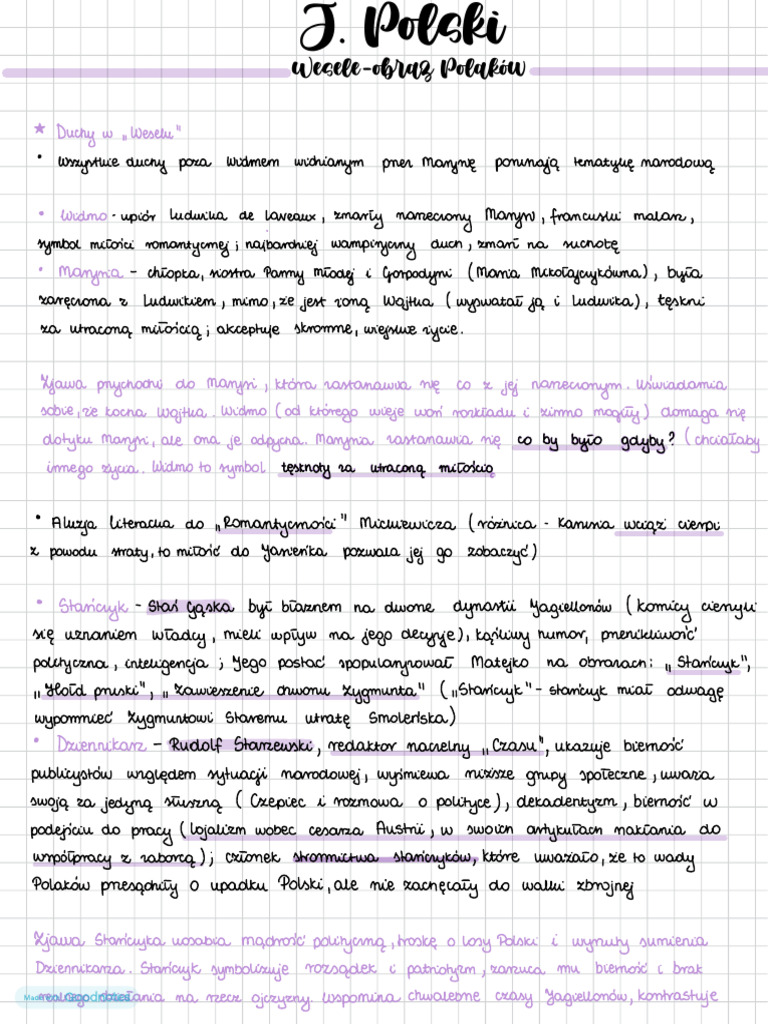 J. Polski
Wesele-obraz Polaków
★ Duchy w „Weselu"
• Wszystkie duchy poza widmem widzianym przez Marynę poruszają tematykę narodową
• Widmo - upiór Ludwika de Laveaux, zmarły narzeczony Marysi, francuski malarz,
symbol miłości romantycznej; najbardziej wampiryczny duch, zmarł na suchotę
• Marysia - chłopka, siostra Panny Młodej i Gospodyni (Maria Mikołajczykówna), była
zaręczona z Ludwikiem, mimo, że jest żoną Wojtka (wyswatał ją i Ludwika), tęskni
za utraconą miłością; akceptuje skromne, wiejskie życie.
Zjawa przychodzi do Marysi, która zastanawia się co z jej narzeczonym. Uświadamia
sobie, że kocha Wojtka. Widmo (od którego wieje woń rozkładu i zimno mogiły) domaga się
dotyku Marysi, ale ona je odpycha. Marysia zastanawia się co by było gdyby? (chciałaby
innego życia. Widmo to symbol tęsknoty za utraconą miłością
• Aluzja literacka do „Romantyczności" Mickiewicza (różnica - Karusia wciąż cierpi
z powodu straty, to miłość do Jasieńka pozwala jej go zobaczyć)
• Stańczyk - Staś Gąska był błaznem na dworze dynastii Jagiellonów (komicy cieszyli
się uznaniem władcy, mieli wpływ na jego decyzje), kąśliwy humor, przenikliwość
polityczna, inteligencja; Jego postać spopularyzował Matejko na obrazach: „Stańczyk",
„Hołd pruski", „Zawieszenie dzwonu Zygmunta" („Stańczyk" - stańczyk miał odwagę
wypomnieć Zygmuntowi Staremu utratę Smoleńska)
• Dziennikarz - Rudolf Starzewski, redaktor naczelny „Czasu", ukazuje bierność
publicystów względem sytuacji narodowej, wyśmiewa niższe grupy społeczne, uważa
swoją za jedyną słuszną (Czepiec i rozmowa o polityce), dekadentyzm, bierność w
podejściu do pracy (lojalizm wobec cesarza Austrii, w swoich artykułach nakłania do
współpracy z zaborcą); członek stronnictwa stańczyków, które uważało, że to wady
Polaków przesądziły o upadku Polski, ale nie zachęcały do walki zbrojnej
Zjawa Stańczyka uosabia mądrość polityczną, troskę o losy Polski i wyrzuty sumienia
Dziennikarza. Stańczyk symbolizuje rozsądek i patriotyzm, zarzuca mu bierność i brak
realnego działania na rzecz ojczyzny. Wspomina chwalebne czasy Jagiellonów, kontrastuje